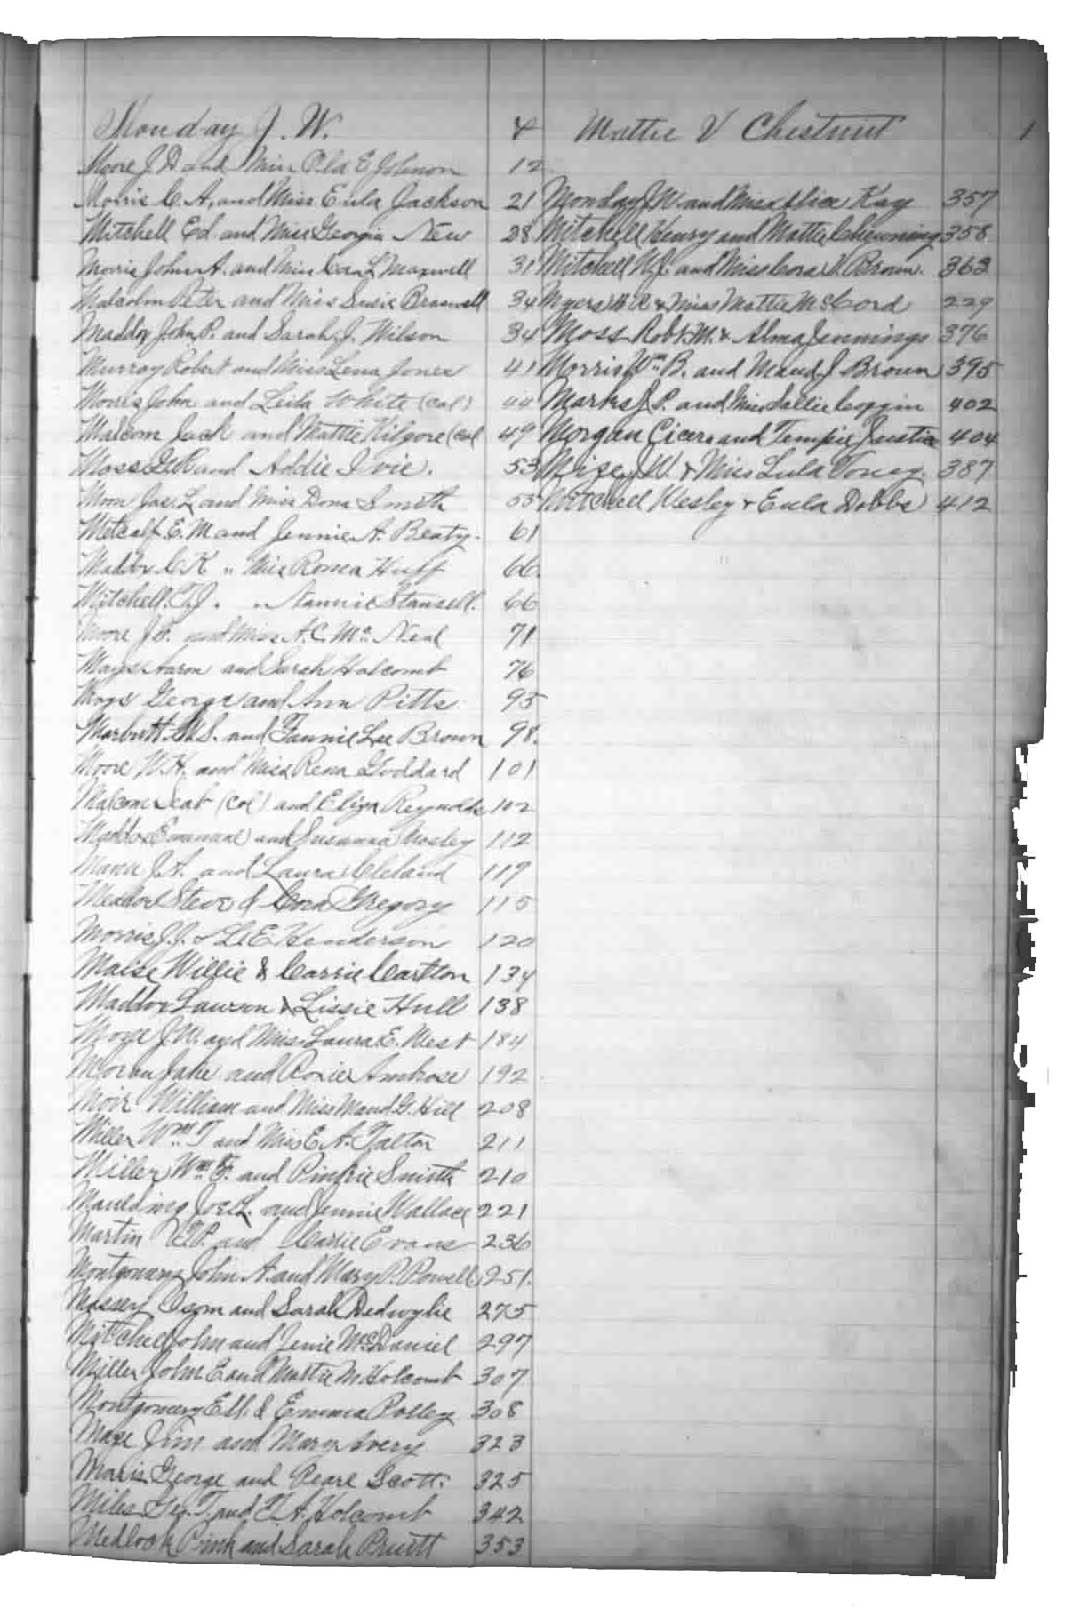 Monday J. W. 4 Mattie V Chestnut 1
Moore J. D and Miss Ola E Johnson 12
Morris C. A, and Miss Eula Jackson 21
Mitchell Ed and Miss Georgia New 28
Morris John A. and Miss Cora L Maxwell 31
Malcolm Peter and Miss Susie Braswell 34
Maddox John P. and Sarah J. Wilson 34
Murray Robert and Miss Lena Jones 41
Morris John and Leila White (Col) 44
Malcom Jack and Mattie Kilgore (Col 49
Moss and Addie Ivie. 53
Moon Jas. L and Miss Dona Smith 55
Metcalf E. M and Jennie A. Beaty. 61
Maddox C. K " Miss Roma Huff 66
Mitchell. T. J. " Nannie Stansell. 66
Moore and Miss A. C. Mc Neal 71
Mays Aaron and Sarah Holcomb 76
Mays George and Ann Pitts 95
Marbutt. M. S. and Fannie Lee Brown 98.
Moore W. H. and Miss Rena Goddard 101
Malcom Seab (Col) and Eliza Reynolds 102
Maddox and Susanna Mosley 112
Mann J. A. and Laura Cleland 119
Meador Steve & Cora Gregory 115
Morris J. J. & L. E Henderson 120
Maise Willie & Carrie Carlton 134
Maddox Lawson & Lissie Hull 138
Moore J. W. and Miss Laura E. West 184
Moran Jake and Roxie Ambrose 192
Moir William and Miss Maud G. Hill 208
Miller Wm T and Miss E. A. Talton 211
Miller Wm F. and Pinkie Smith 210
Mauldin Joe L. and Jennie Wallace 221
Martin and Carrie Evans 236
Montgomery John A. and Mary P. Powell 251.
Massey Osom and Sarah Dedwylie 275
Mitchell John and Jenie McDaniel 297
Miller John E and Mattie M Holcomb 307
Montgomery E. M. & Emma Polley 308
Maxe Jim and Mary Avery 323
Moris George and Pearl Scott. 325
Miles Geo. T. and T. A. Holcomb 342
Medlock Pink and Sarah Pruett 353
Monday J. W. and Miss Alice Kay 357
Mitchell Henry and Mattie Chewning 358
Mitchell W. J. and Miss Cora V. Brown. 363
Myers W. R. & Miss Mattie McCord 229
Moss Robt. M. & Alma Jennings 376
Morris Wm B. and Maud J Brown 395
Marks J. P. and Miss Sallie Coggin 402
Morgan Cicero and Tempie Justia 404
Mize J. W. & Miss Lula Toney. 387
Mitchell Wesley & Eula Dobbs 412